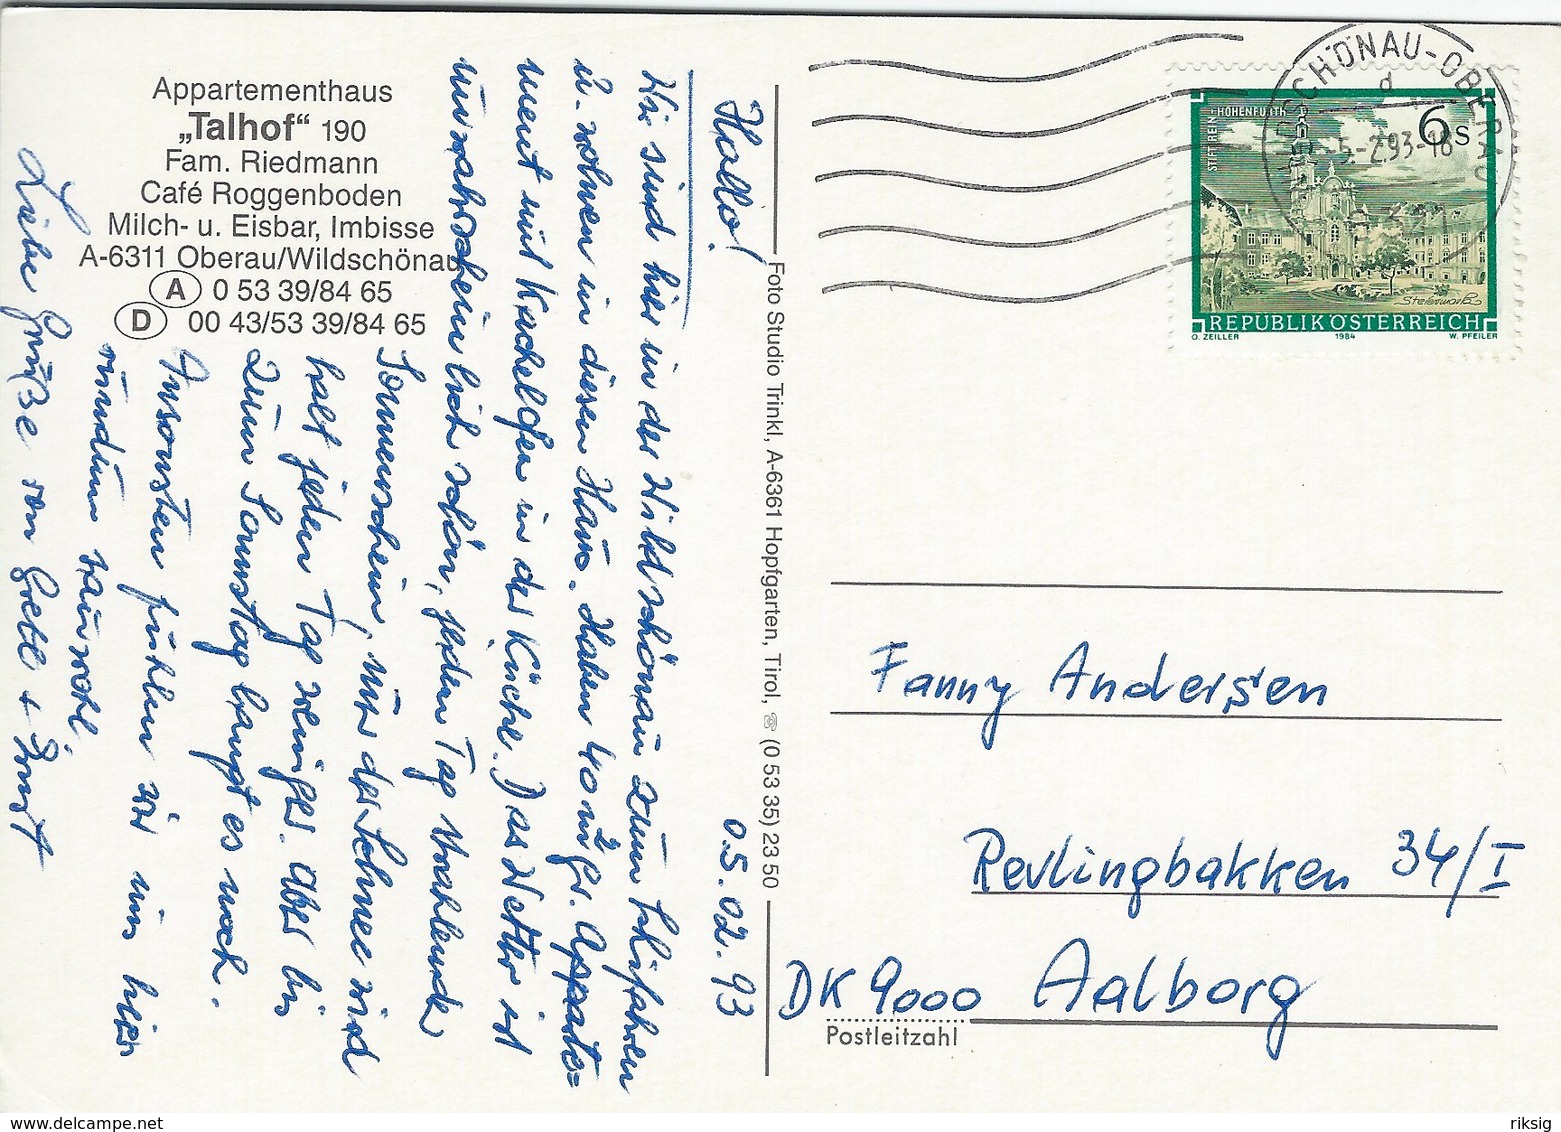 Appartementhaus
„Talhof“ 190
Fam. Riedmann
Café Roggenboden
Milch- u. Eisbar, Imbisse
A-6311 Oberau/Wildschönau
A 0 53 39/84 65
D 00 43/53 39/84 65
05.02.93
Hallo!
Wir sind hier in der Wildschönau zum Skifahren
u. wohnen in diesen Haus. Haben 40 m² gr. Apparte=
ment mit Kachelofen in der Küche. Das Wetter ist
unwahrscheinlich schön, jeden Tag strahlende
Sonnenschein, nur der Schnee wird
halt jeden Tag weniger. Aber bis
zum Sonntag langt es noch.
Ansonsten fühlen wir uns hier
rundum sauwohl.
Liebe Grüße von Gretl + Ernst
Foto Studio Trinkl, A-6361 Hopfgarten, Tirol, ☏ (0 53 35) 23 50
SCHÖNAU-OBERAU
d
5-2.93-18
STIFT REIN-HOHENFURTH
6s
Steiermark
REPUBLIK ÖSTERREICH
O. ZEILLER 1984 W. PFEILER
Fanny Andersen
Revlingbakken 34/I
DK 9000 Aalborg
Postleitzahl
riksig
www.delcampe.net